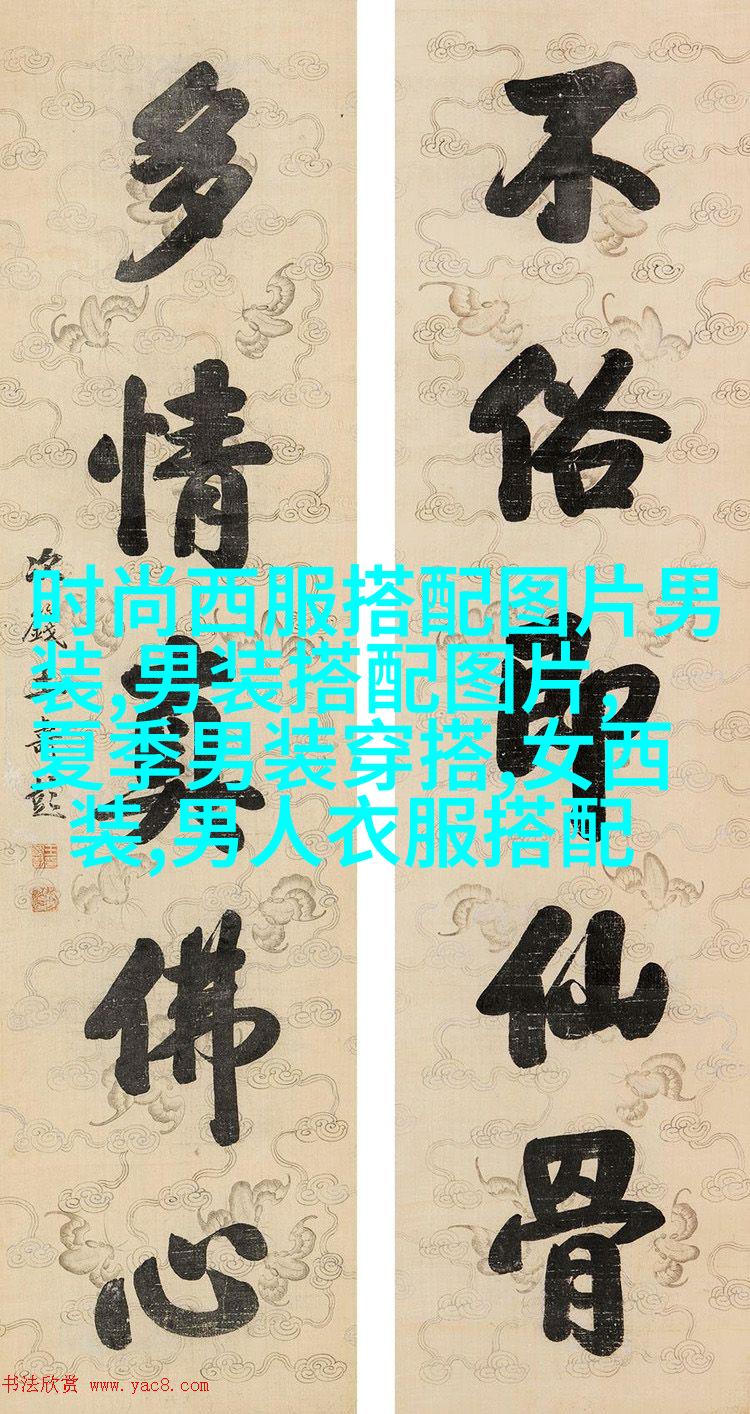 不俗即仙骨
多情真佛心
时尚西服搭配图片男
装,男装搭配图片,
夏季男装穿搭,女西
装,男人衣服搭配
书法欣赏 www.yac8.com